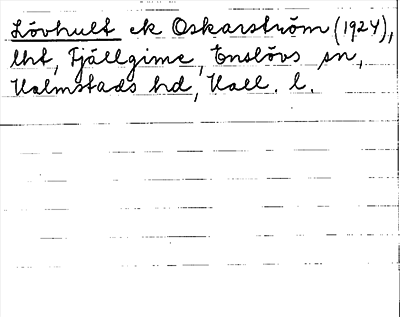 Lövhult ek Oskarström (1924),
lht, Fjällgime, Enslövs sn,
Halmstads hd, Hall. l.